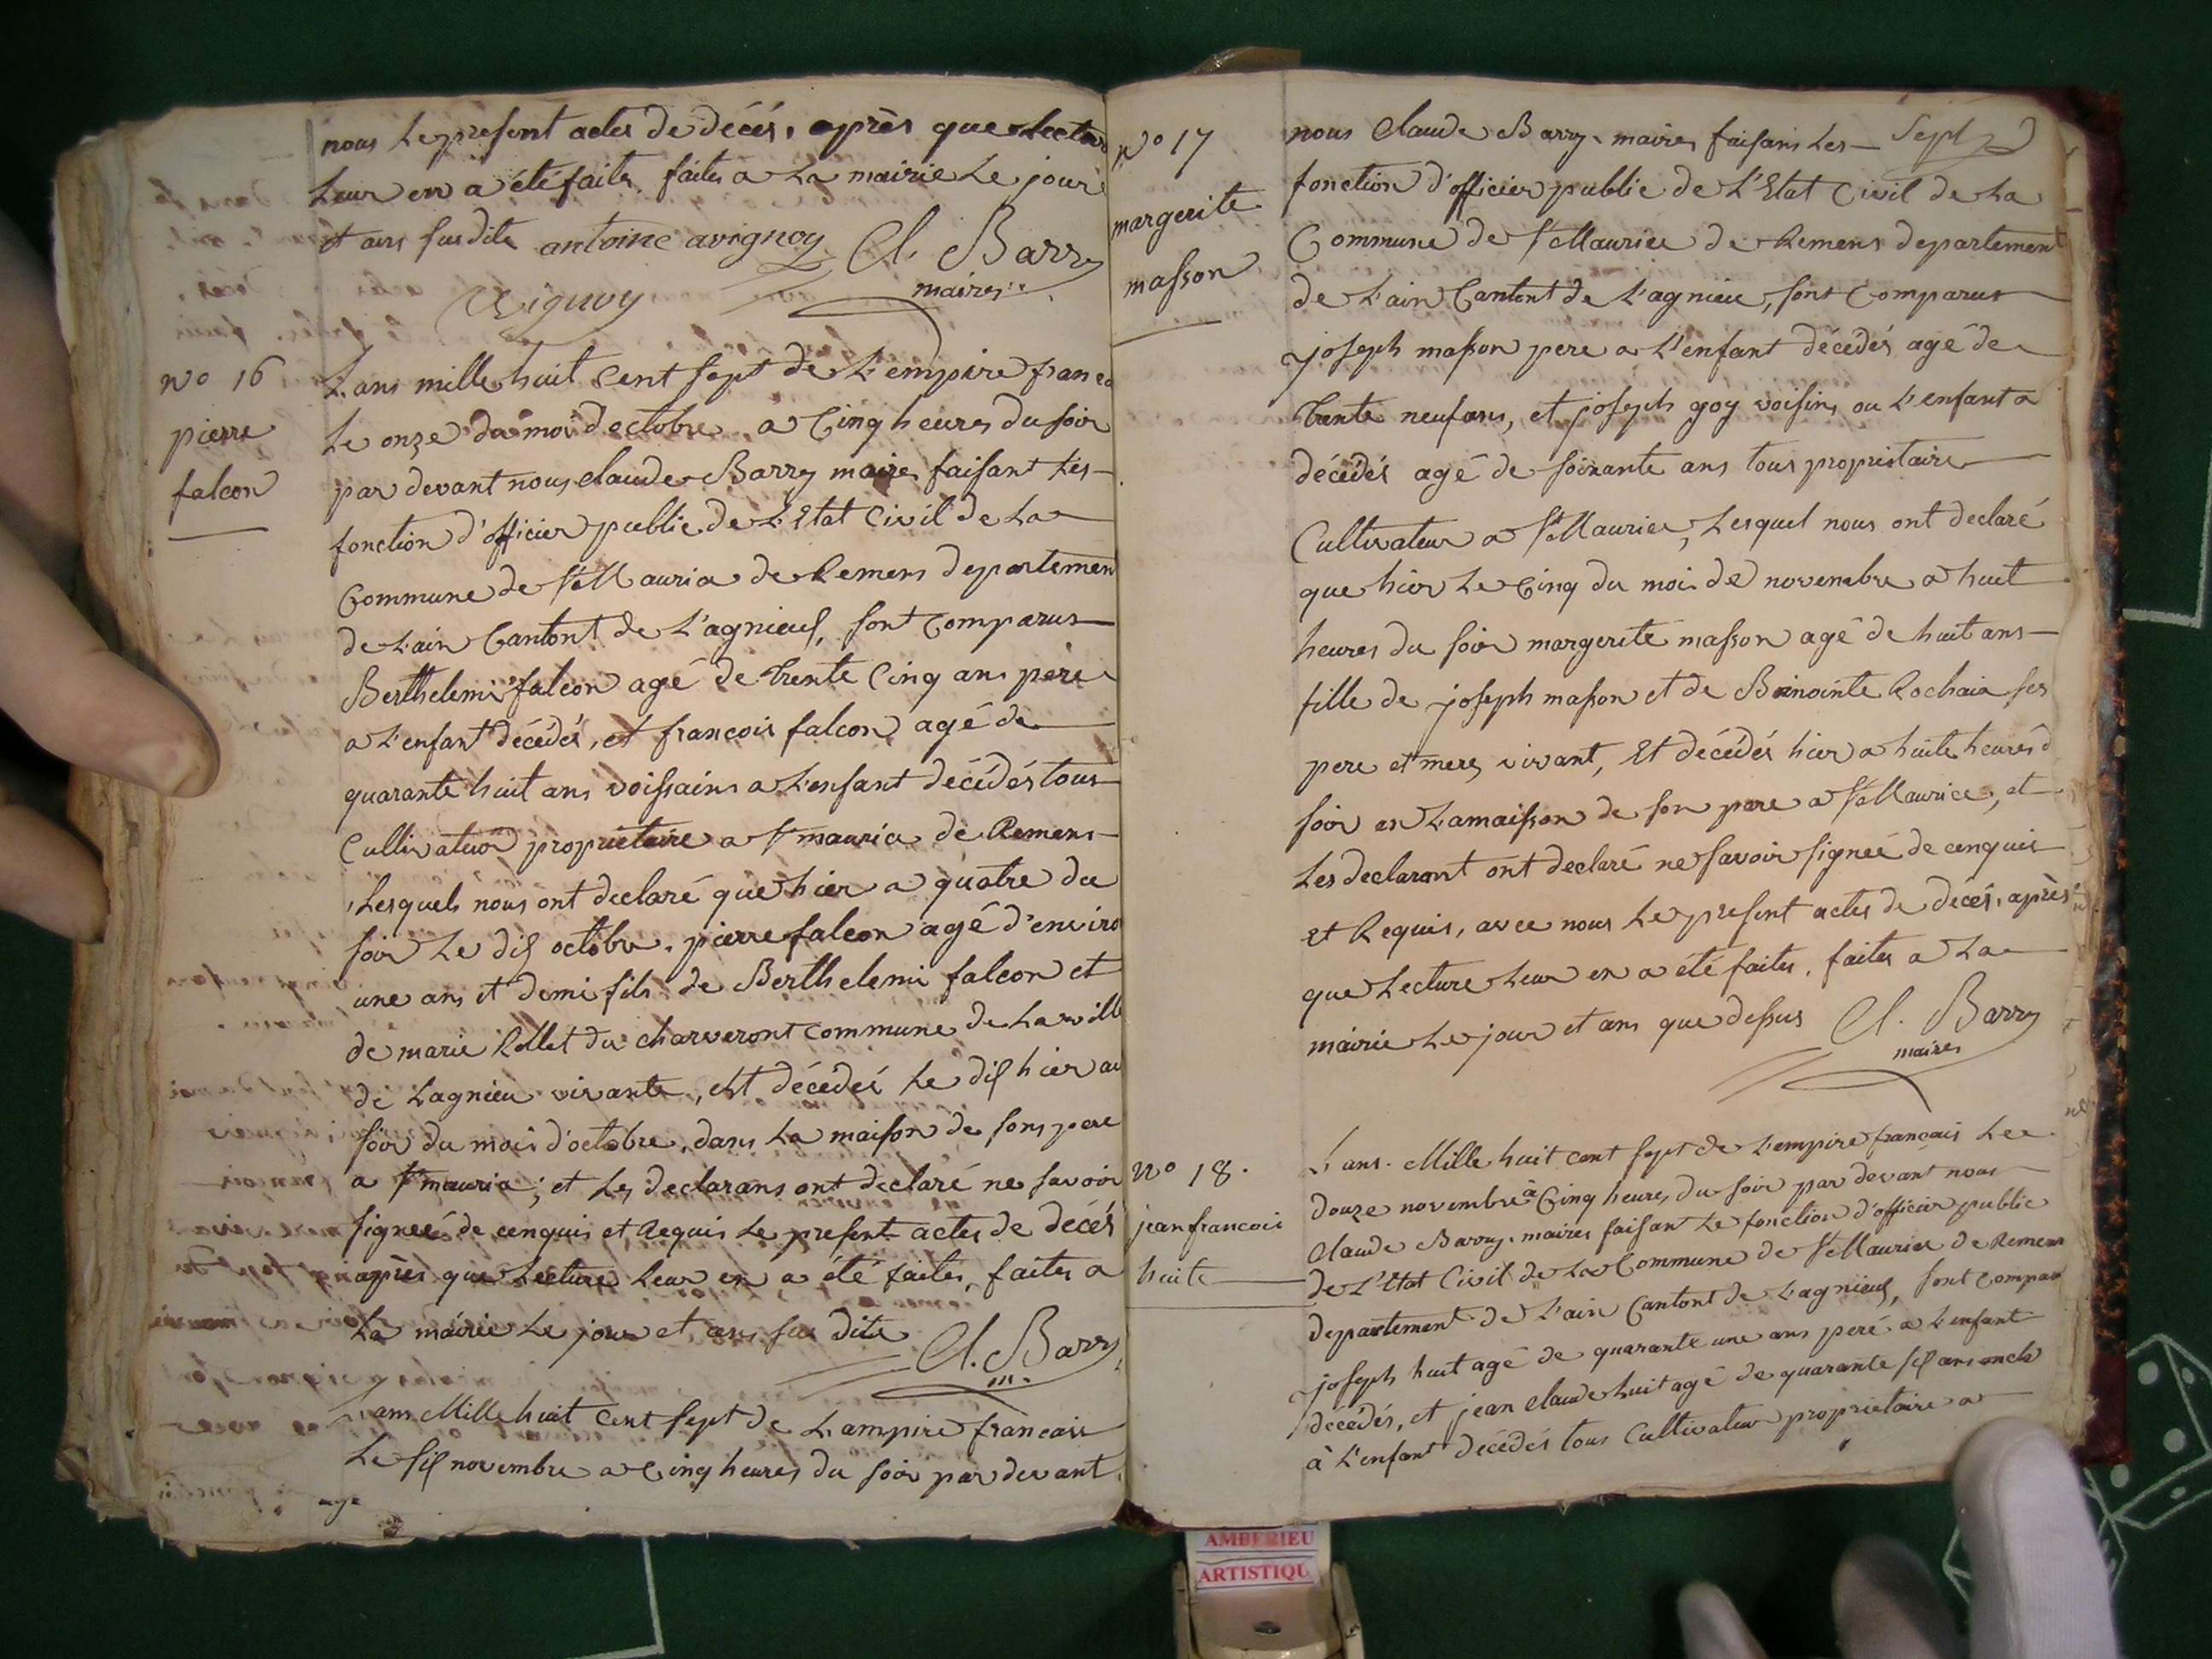 nous le present actes de décés, après que lectur
leur en a été faite, faites a la mairie le jour
et ans susdite antoine avignoy Cl. Barry
maires
avignoy
N° 16
pierre
falcon
L'ans mille huit Cent sept de L'empire franca
Le onze du moi d'octobre a Cinq heures du soir
par devant nous claude Barry maires faisant les
fonction d'officier public de L'Etat Civil de La
Commune de St Mauria de Remens departemen
de L'ain Cantont de L'agnieux, sont Comparus
Berthelemi falcon agé de trente Cinq ans père
a L'enfant décédés, et francois falcon agé de
quarante huit ans voissains a L'enfant décédés tous
Cultivateur proprietaire a St mauria de Remens
Lesquels nous ont declaré que hier a quatre du
soir Le dix octobre, pierre falcon agé d'enviro
une ans et demi fils de Berthelemi falcon et
de marie Rollet du charveront commune de La vill
de Lagnieu vivante, est décédés le dix hier au
soir du mois d'octobre, dans La maison de sons pere
a St mauria; et les declarans ont declaré ne savoir
signeé de cenquis et Requis Le present actes de décés
après que Lecture leur en a été faites, faites a
La mairie Le jour et ans sus dite
Cl. Barry
m.
L'ans Mille huit Cent sept de L'ampire francais
Le six novembre a Cinq heures du soir par devant
N° 17
margerite
masson
nous Claude Barry maires faisans les Sept
fonction d'officier public de L'Etat Civil de La
Commune de St Maurice de Remens departement
de L'ain Cantont de L'agnieu, sont Comparus
joseph masson pere a L'enfant décédés agé de
trente neuf ans, et joseph goy voisins ou L'enfant a
décédés agé de soixante ans tous propriotaire
Cultivateur a St Maurice, Lesquel nous ont declaré
que hier Le Cinq du moi de novembre a huit
heures du soir margerite masson agé de huit ans
fille de joseph masson et de Rochaia ses
pere et mere, vivant, Et décédés hier a huite heures d
soir en La maisson de son pere a St Maurice, et
Les declaront ont declaré ne savoir signeé de cenquis
et Requis, avec nous Le present actes de décés, après
que Lecture Leur en a été faites, faites a La
mairie Le jour et ans que dessus Cl. Barry
maires
N° 18.
jean francois
huite
L'ans. Mille huit cent sept de L'empire francais Le
douze novembre à Cinq heures du soir par devant nous
Claude Barry, maires faisant Le fonction d'officier public
de L'Etat Civil de La Commune de St Maurice de Remens
departement de L'ain Cantont de L'agnieux, sont Compar
joseph huit agé de quarante une ans peré a L'enfant
décédés, et jean claude huit agé de quarante six ans oncle
à L'enfant décédés tous Cultivateur proprietaire a
AMBERIEU
ARTISTIQU